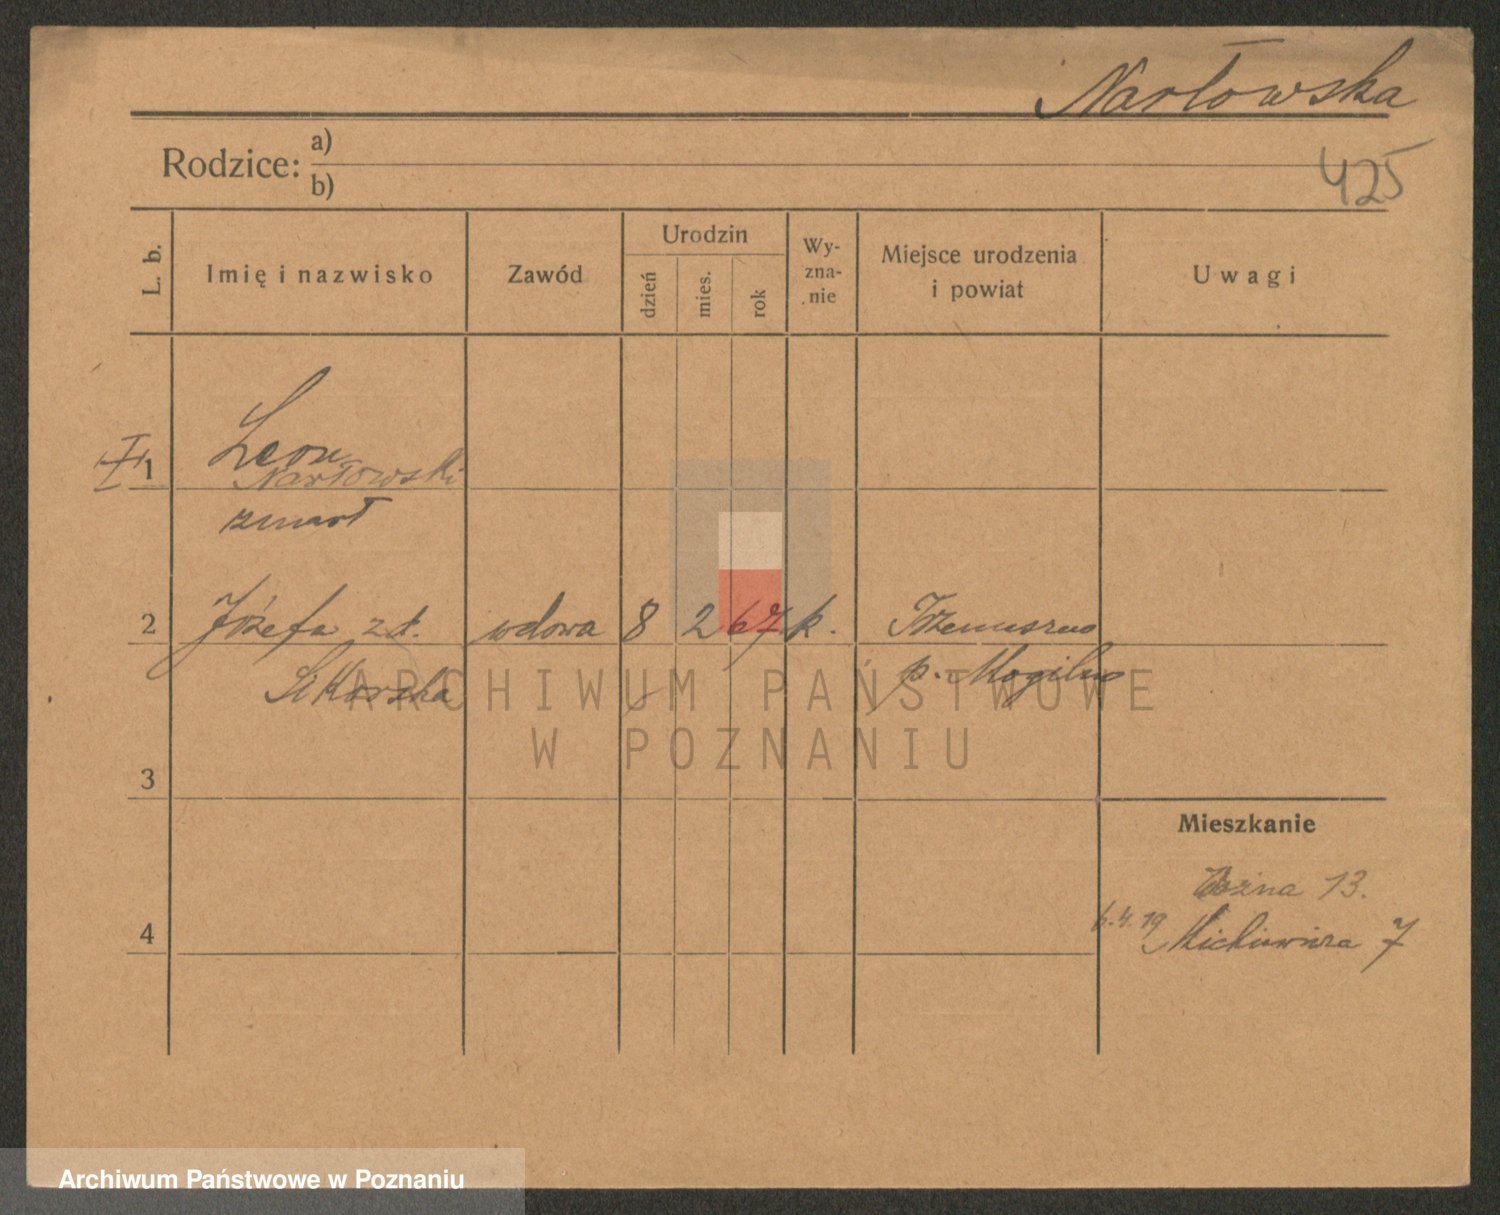 Narłowska
Rodzice: a)
b)
425
L. b.
Imię i nazwisko
Zawód
Urodzin
dzień
mies.
rok
Wy-
zna-
nie
Miejsce urodzenia
i powiat
Uwagi
I
1
Leon
Narłowski
zmarł
2 Józefa z d. wdowa 8 2 67 k. Trzemeszno
Sikorska p. Mogilno
ARCHIWUM PAŃSTWOWE
W POZNANIU
3
Mieszkanie
13.
4
6.4.19 Mickiewicza 7
Archiwum Państwowe w Poznaniu